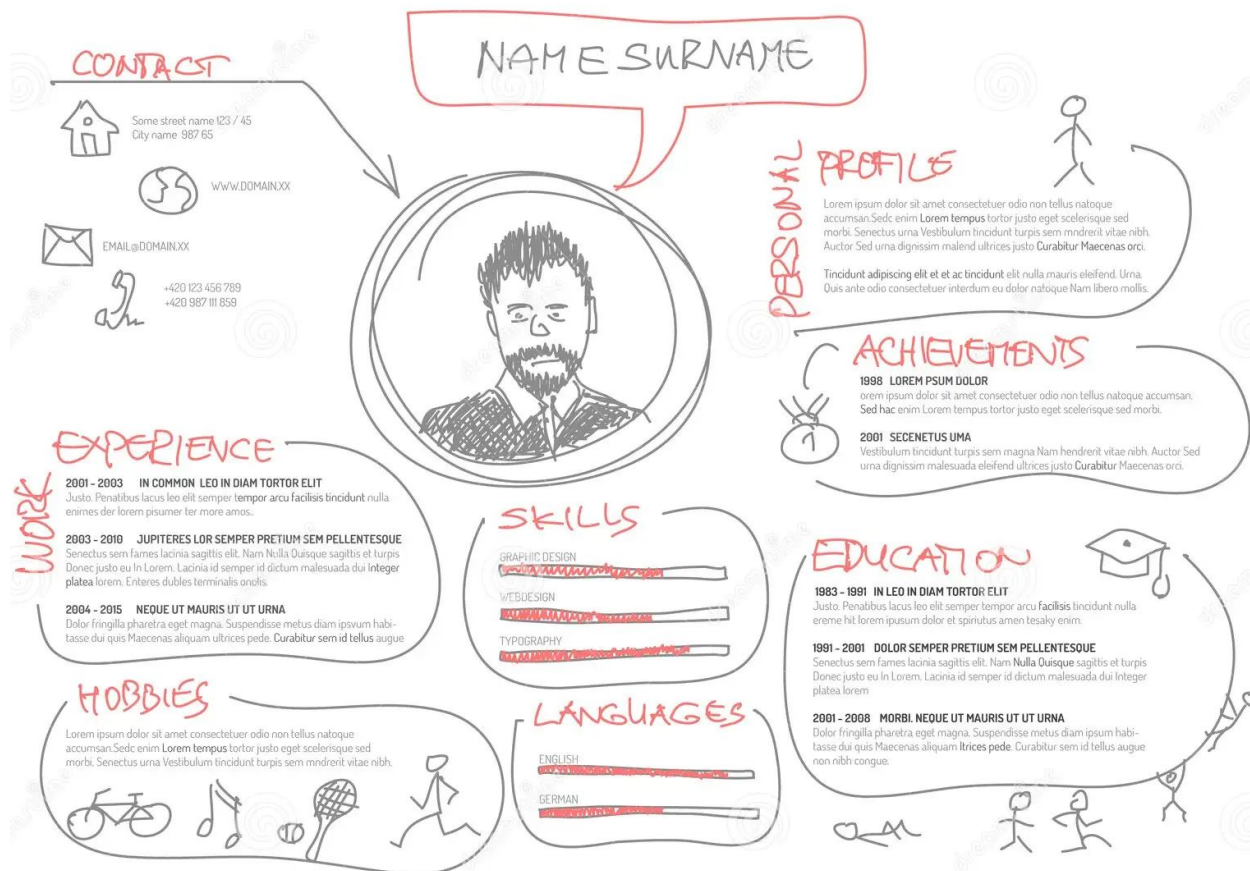 NAME SURNAME
CONTACT
Some street name 123 / 45
City name 987 65
WWW.DOMAIN.XX
EMAIL@DOMAIN.XX
+420 123 456 789
+420 987 111 859
PERSONAL
PROFILE
Lorem ipsum dolor sit amet consectetuer odio non tellus natoque
accumsan.Sedc enim Lorem tempus tortor justo eget scelerisque sed
morbi. Senectus urna Vestibulum tincidunt turpis sem mndrerit vitae nibh.
Auctor Sed urna dignissim malend ultrices justo Curabitur Maecenas orci.
Tincidunt adipiscing elit et et ac tincidunt elit nulla mauris eleifend. Urna,
Quis ante odio consectetuer interdum eu dolor natoque Nam libero mollis.
ACHIEVEMENTS
1998 LOREM PSUM DOLOR
orem ipsum dolor sit amet consectetuer odio non tellus natoque accumsan.
Sed hac enim Lorem tempus tortor justo eget scelerisque sed morbi.
2001 SECENETUS UMA
Vestibulum tincidunt turpis sem magna Nam hendrerit vitae nibh. Auctor Sed
urna dignissim malesuada eleifend ultrices justo Curabitur Maecenas orci.
1
WORK
EXPERIENCE
2001 - 2003 IN COMMON LEO IN DIAM TORTOR ELIT
Justo. Penatibus lacus leo elit semper tempor arcu facilisis tincidunt nulla
enimes der lorem pisumer ter more amos..
2003 - 2010 JUPITERES LOR SEMPER PRETIUM SEM PELLENTESQUE
Senectus sem fames lacinia sagittis elit. Nam Nulla Quisque sagittis et turpis
Donec justo eu In Lorem. Lacinia id semper id dictum malesuada dui Integer
platea lorem. Enteres dubles terminalis onolis.
2004 - 2015 NEQUE UT MAURIS UT UT URNA
Dolor fringilla pharetra eget magna. Suspendisse metus diam ipsvum habi-
tasse dui quis Maecenas aliquam ultrices pede. Curabitur sem id tellus augue
SKILLS
GRAPHIC DESIGN
WEBDESIGN
TYPOGRAPHY
EDUCATION
1983 - 1991 IN LEO IN DIAM TORTOR ELIT
Justo. Penatibus lacus leo elit semper tempor arcu facilisis tincidunt nulla
ereme hit lorem ipusum dolor et spiriutus amen tesaky enim.
1991 - 2001 DOLOR SEMPER PRETIUM SEM PELLENTESQUE
Senectus sem fames lacinia sagittis elit. Nam Nulla Quisque sagittis et turpis
Donec justo eu In Lorem. Lacinia id semper id dictum malesuada dui Integer
platea lorem
2001 - 2008 MORBI. NEQUE UT MAURIS UT UT URNA
Dolor fringilla pharetra eget magna. Suspendisse metus diam ipsum habi-
tasse dui quis Maecenas aliquam ltrices pede. Curabitur sem id tellus augue
non nibh congue.
HOBBIES
Lorem ipsum dolor sit amet consectetuer odio non tellus natoque
accumsan.Sedc enim Lorem tempus tortor justo eget scelerisque sed
morbi. Senectus urna Vestibulum tincidunt turpis sem mndrerit vitae nibh.
LANGUAGES
ENGLISH
GERMAN